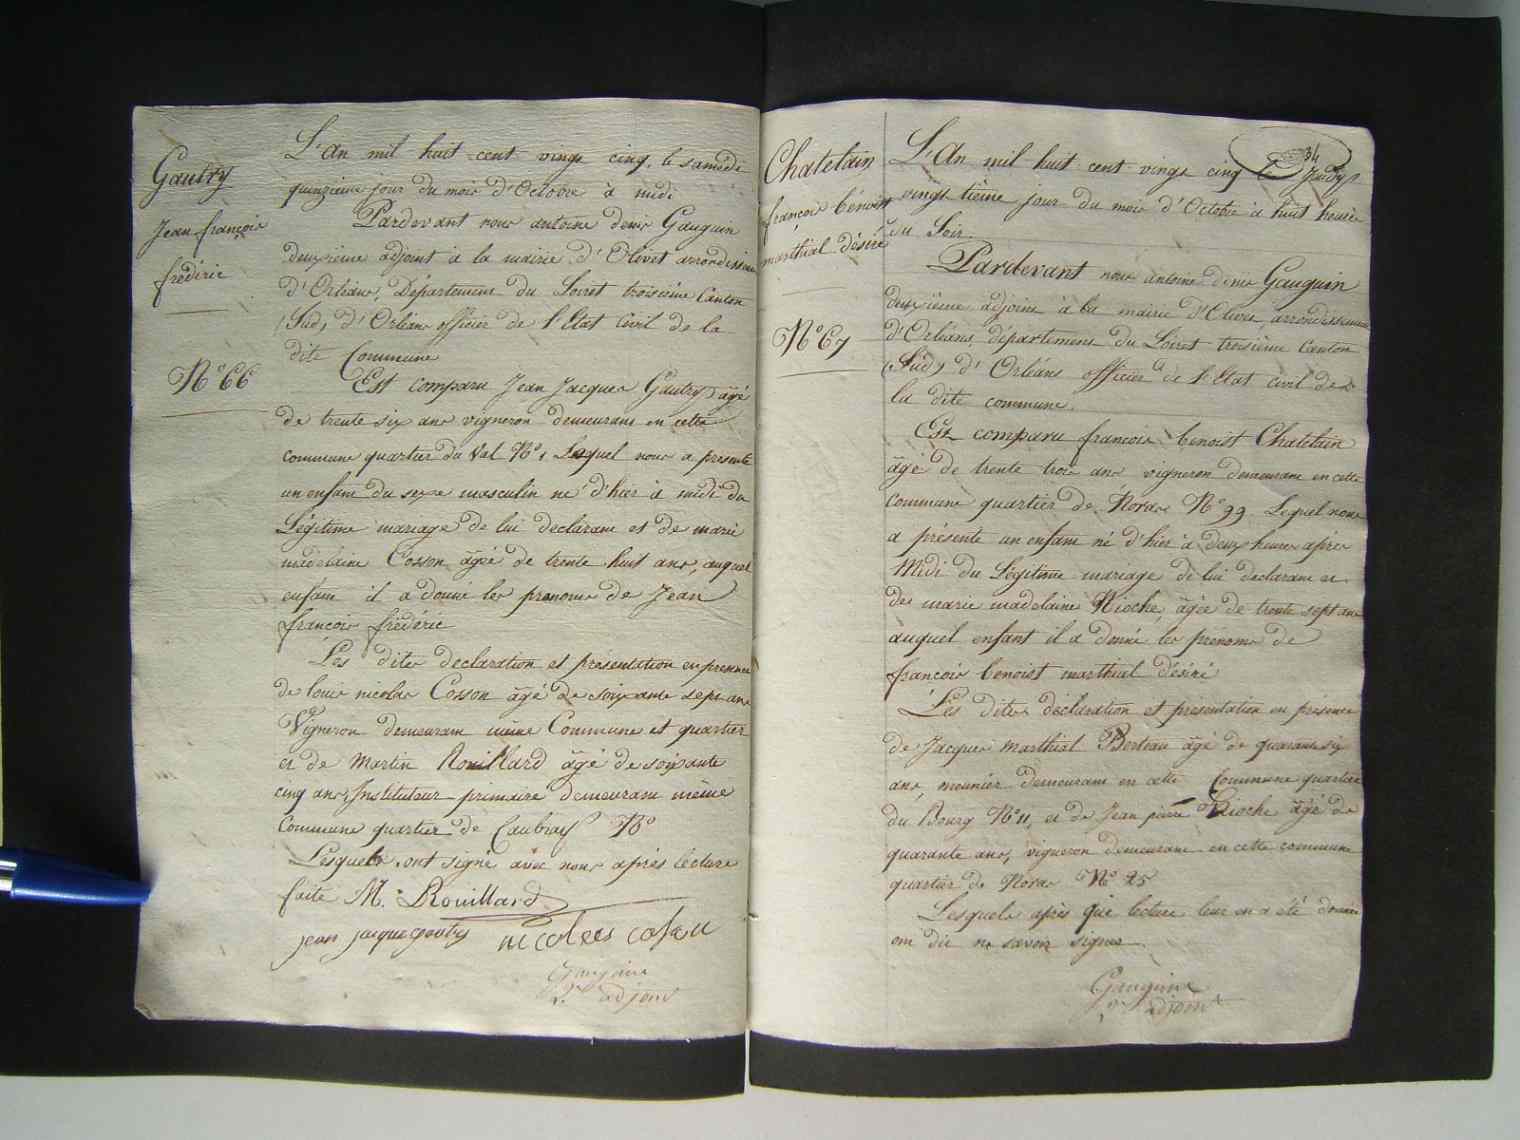 Gautry
Jean françois
frédéric
N° 66
L'An mil huit cent vingt cinq, le samedi
quinzieme jour du mois d'Octobre à midi
Pardevant nous antoine denis Gauguin
deuxieme adjoint à la mairie d'Olivet arrondissem
d'Orléans, Département du Loiret troisième Canton
(Sud) d'Orléans officier de l'Etat Civil de la
dite Commune
Est comparu Jean Jacques Gautry agé
de trente six ans vigneron demeurant en cette
commune quartier du Val N° 1 Lequel nous a présenté
un enfant du sexe masculin né d'hier à midi du
Légitime mariage de lui declarant et de marie
madelaine Cosson agée de trente huit ans, auquel
enfant il a donné les prenoms de Jean
françois frédéric
Les dites declaration et présentation en presence
de louis nicolas Cosson agé de soixante sept ans
Vigneron demeurant même Commune et quartier
et de Martin Rouillard agé de soixante
cinq ans, Instituteur primaire demeurant même
Commune quartier de Caubray N°
Lesquels ont signé avec nous après lecture
faite M. Rouillard
jean jacque gautry nicolas coson
Gauguin
2e adjoint
34
Chatelain
françois benoist
marthial désiré
N° 67
L'An mil huit cent vingt cinq le Jeudy
vingtieme jour du mois d'Octobre à huit heures
du Soir.
Pardevant nous antoine denis Gauguin
deuxième adjoint à la mairie d'Olivet, arrondissement
d'Orléans, département du Loiret troisième Canton
(Sud) d'Orléans officier de l'Etat civil de
la dite commune.
Est comparu françois benoist Chatelain
âgé de trente trois ans vigneron demeurant en cette
commune quartier de Noras N° 99 Lequel nous
a présenté un enfant né d'hier à deux heures après
Midi du Légitime mariage de lui declarant et
de marie madelaine Rioche, âgée de trente sept ans
auquel enfant il a donné les prénoms de
françois benoist marthial désiré
Les dites déclaration et présentation en présence
de Jacques marthial Berteau âgé de quarante six
ans, meunier demeurant en cette Commune quartier
du Bourg N° 11, et de Jean pierre Rioche âgé de
quarante ans, vigneron demeurant en cette commune
quartier de Noras N° 25
Lesquels après que lecture leur en a été donnée
ont dit ne savoir signer
Gauguin
2e adjoint